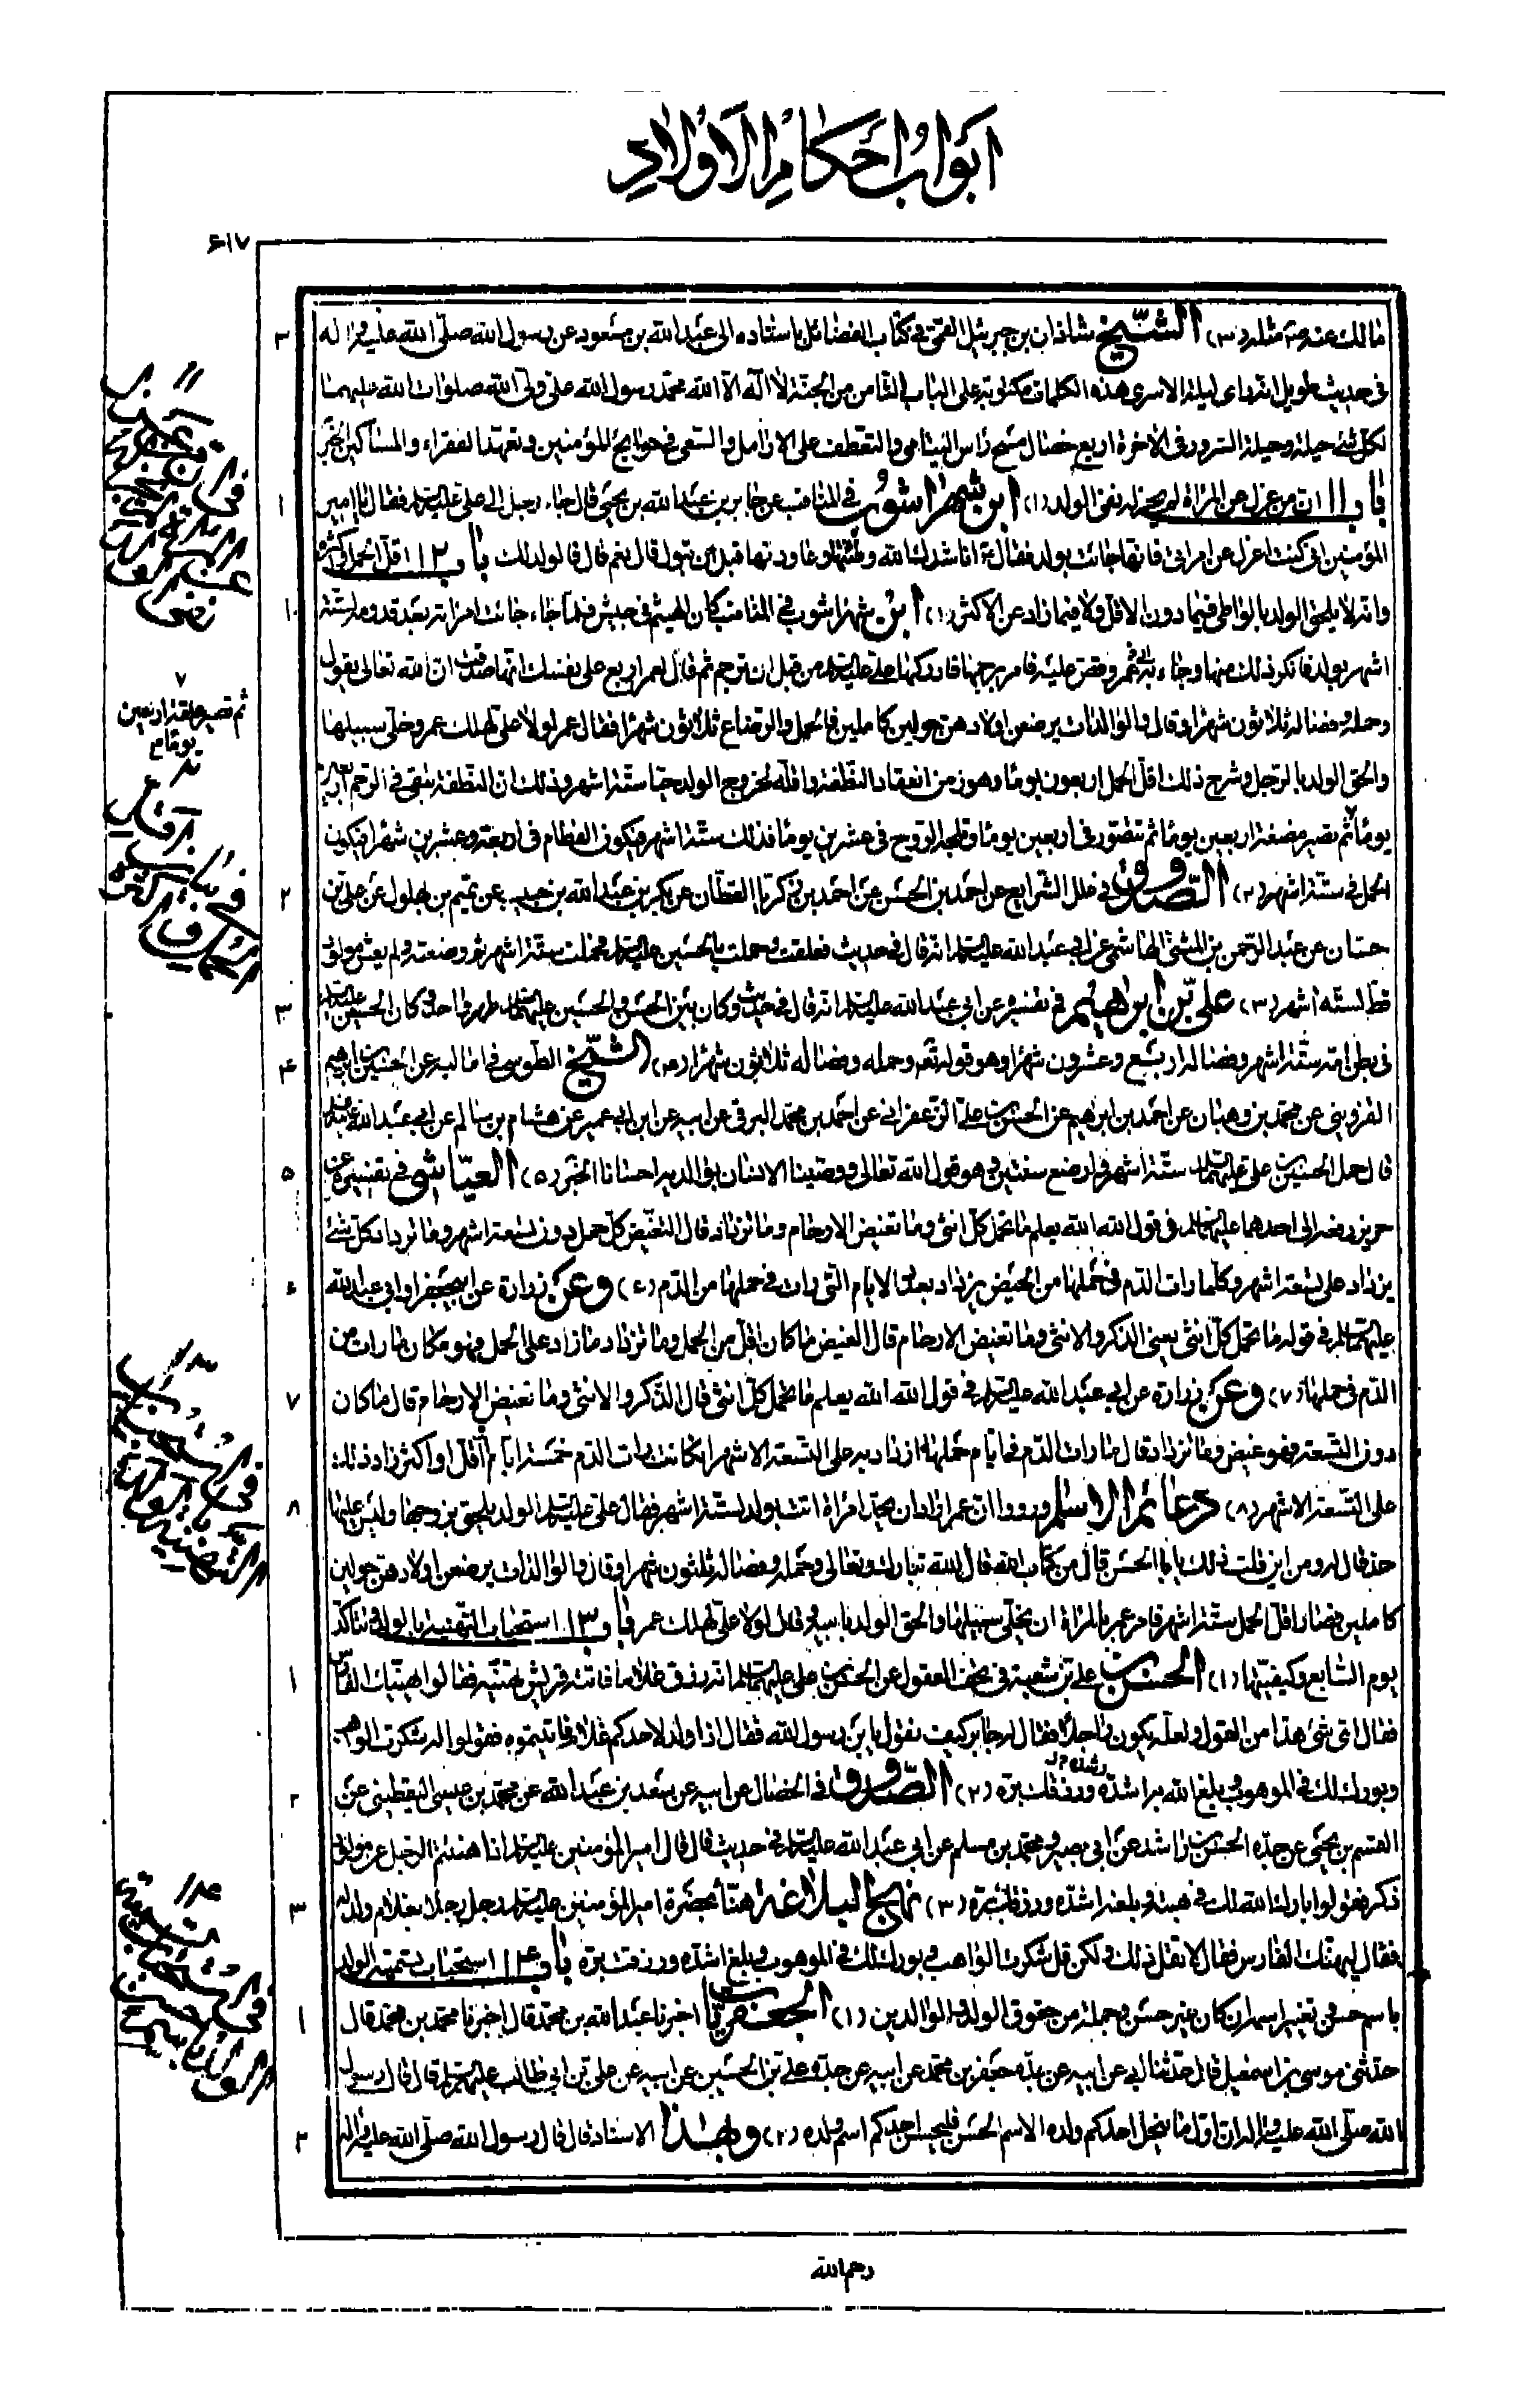 ابواب احكام الاولاد
۶۱۷
مالك عنه مثله (۳) الشيخ شاذان بن جبرئيل القمي في كتاب الفضائل باسناده الى عبد الله بن مسعود عن رسول الله صلى الله عليه واله
في حديث طويل انه راى ليلة الاسرى هذه الكلمات مكتوبة على الباب الثامن من الجنة لا اله الا الله محمد رسول الله علي ولي الله صلوات الله عليهما
لكل شئ حيلة وحيلة السرور في الاخرة اربع خصال مسح راس اليتامى والتعطف على الارامل والسعي في حوائج المؤمنين وتعهد الفقراء والمساكين الخبر
باب ۱۱ ان من عزل عن المراة لم يجز له نفي الولد (۱) ابن شهراشوب في المناقب عن جابر بن عبد الله بن يحيى قال جاء رجل الى علي عليه السلم فقال يا امير
المؤمنين اني كنت اعزل عن امراتي فانها جائت بولد فقال ع اناشدك الله وطئتها وعاودتها قبل ان تبول قال نعم قال فالولد لك باب ۱۲ اقل الحمل واكثره
وانه لا يلحق الولد بالواطي فيما دون الاقل ولا فيما زاد عن الاكثر (۱) ابن شهراشوب في المناقب كان الهيثم في جيش فلما جاء جائت امراته بعد قدومه لستة
اشهر بولد فانكر ذلك منها وجاء به الى عمر وقص عليه فامر برجمها فادركها علي عليه السلم من قبل ان ترجم ثم قال لعمر اربع على نفسك انها صدقت ان الله تعالى يقول
وحمله وفصاله ثلاثون شهرا وقال والوالدات يرضعن اولادهن حولين كاملين فالحمل والرضاع ثلاثون شهرا فقال عمر لولا علي لهلك عمر وخلى سبيلها
والحق الولد بالرجل وشرح ذلك اقل الحمل اربعون يوما وهو زمن انعقاد النطفة واقله لخروج الولد حيا ستة اشهر وذلك ان النطفة تبقى في الرحم اربعين
يوما ثم تصير مضغة اربعين يوما ثم تتصور في اربعين يوما وتلجه الروح في عشرين يوما فذلك ستة اشهر فيكون الفطام في اربعة وعشرين شهرا فيكون
الحمل في ستة اشهر (۲) الصدوق في علل الشرايع عن احمد بن الحسن عن احمد بن زكريا القطان عن بكر بن عبد الله بن حبيب عن تميم بن بهلول عن علي بن
حسان عن عبد الرحمن بن المثنى الهاشمي عن ابي عبد الله عليه السلم انه قال في حديث فعلقت وحملت بالحسين عليه السلم فحملت ستة اشهر ثم وضعته ولم يعش مولود
قط لستة اشهر (۳) علي بن ابراهيم في تفسيره عن ابي عبد الله عليه السلم انه قال في حديث وكان بين الحسن والحسين عليهما السلم طهر واحد وكان الحسين عليه السلم
في بطن امه ستة اشهر وفصاله اربع وعشرون شهرا وهو قوله تع وحمله وفصاله ثلاثون شهرا (۴) الشيخ الطوسي في اماليه عن الحسين بن ابراهيم
القزويني عن محمد بن وهبان عن احمد بن ابراهيم عن الحسن بن علي الزعفراني عن احمد بن محمد البرقي عن ابيه عن ابن ابي عمير عن هشام بن سالم عن ابي عبد الله عليه السلم
قال حمل الحسين بن علي عليهما السلم ستة اشهر وارضع سنتين وهو قول الله تعالى ووصينا الانسان بوالديه احسانا الخبر (۵) العياشي في تفسيره عن
حريز رفعه الى احدهما عليهما السلم في قول الله الله يعلم ما تحمل كل انثى وما تغيض الارحام وما تزداد قال الغيض كل حمل دون تسعة اشهر وما تزداد كل شئ
يزداد على تسعة اشهر وكلما رات الدم في حملها من الحيض يزداد بعدد الايام التي رات في حملها من الدم (۶) وعن زرارة عن ابي جعفر او ابي عبد الله
عليهما السلم في قوله ما تحمل كل انثى يعني الذكر والانثى وما تغيض الارحام قال الغيض ما كان اقل من الحمل وما تزداد ما زاد على الحمل فهو مكان ما رات من
الدم في حملها (۷) وعن زرارة عن ابي عبد الله عليه السلم في قول الله الله يعلم ما تحمل كل انثى قال الذكر والانثى وما تغيض الارحام قال ما كان
دون التسعة فهو غيض وما تزداد قال ما رات الدم في ايام حملها ازداد به على التسعة الاشهر ان كانت رات الدم خمسة ايام او اقل او اكثر زاد ذلك
على التسعة الاشهر (۸) دعائم الاسلام ورووا ان عمر اراد ان يحد امراة اتت بولد لستة اشهر فقال علي عليه السلم الولد يلحق بزوجها وليس عليها
حد فقال له ومن اين قلت ذلك يا ابا الحسن قال من كتاب الله قال الله تبارك وتعالى وحمله وفصاله ثلثون شهرا وقال والوالدات يرضعن اولادهن حولين
كاملين فصار اقل الحمل ستة اشهر فامر عمر بالمراة ان يخلى سبيلها والحق الولد بابيه وقال لولا علي لهلك عمر باب ۱۳ استحباب التهنية بالولد وتتاكد
يوم السابع وكيفيتها (۱) الحسن بن علي بن شعبة في تحف العقول عن الحسن بن علي عليهما السلم انه رزق غلاما فاتته قريش تهنيه فقالوا يهنيك الفارس
فقال اي شئ هذا من القول ولعله يكون راجلا فقال له جابر كيف نقول يا بن رسول الله فقال اذا ولد لاحدكم غلام فاتيتموه فقولوا له شكرت الواهب
وبورك لك في الموهوب بلغ الله به اشده ورزقك بره (۲) الصدوق في الخصال عن ابيه عن سعد بن عبد الله عن محمد بن عيسى اليقطيني عن
القسم بن يحيى عن جده الحسن بن راشد عن ابي بصير ومحمد بن مسلم عن ابي عبد الله عليه السلم في حديث قال قال امير المؤمنين عليه السلم اذا هنئتم الرجل عن مولود
ذكر فقولوا بارك الله لك في هبته وبلغه اشده ورزقك بره (۳) نهج البلاغة هنأ بحضرة امير المؤمنين عليه السلم رجل رجلا بغلام ولد له
فقال ليهنئك الفارس فقال لا تقل ذلك ولكن قل شكرت الواهب وبورك لك في الموهوب وبلغ اشده ورزقت بره باب ۱۴ استحباب تسمية الولد
باسم حسن وتغيير اسمه ان كان غير حسن وجملة من حقوق الولد والوالدين (۱) الجعفريات اخبرنا عبد الله بن محمد قال اخبرنا محمد بن محمد قال
حدثني موسى بن اسمعيل قال حدثنا ابي عن ابيه عن جده جعفر بن محمد عن ابيه عن جده علي بن الحسين عن ابيه عن علي بن ابي طالب عليهم السلم قال قال رسول
الله صلى الله عليه واله ان اول ما ينحل احدكم ولده الاسم الحسن فليحسن احدكم اسم ولده (۲) وبهذا الاسناد قال قال رسول الله صلى الله عليه واله
رحم الله
ثم تصير علقة اربعين
يوما م